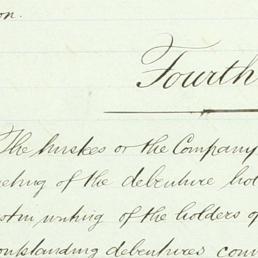 on.
Fourth
The Trustees or the Company
eeting of the debenture hol
est in writing of the holders of
outstanding debentures conv